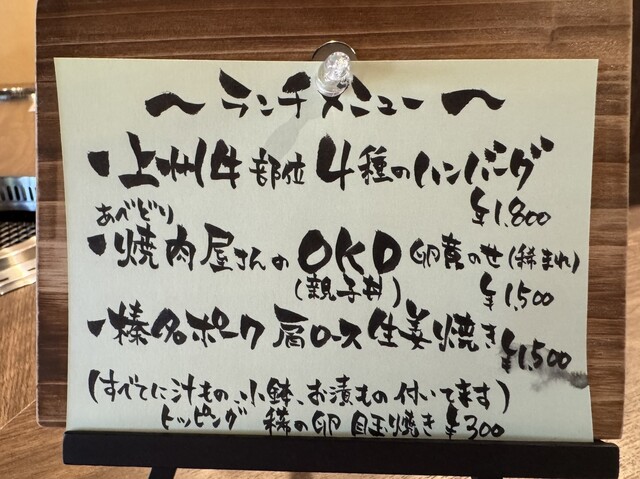 〜ランチメニュー〜
・上州牛部位4種のハンバーグ
¥1,800
あべどり
・焼肉屋さんのOKD 卵黄のせ(稀まれ)
(親子丼) ¥1,500
・榛名ポーク肩ロース生姜焼き ¥1,500
(すべてに汁もの、小鉢、お漬もの付いて来ます)
トッピング 稀の卵 目玉焼き ¥300